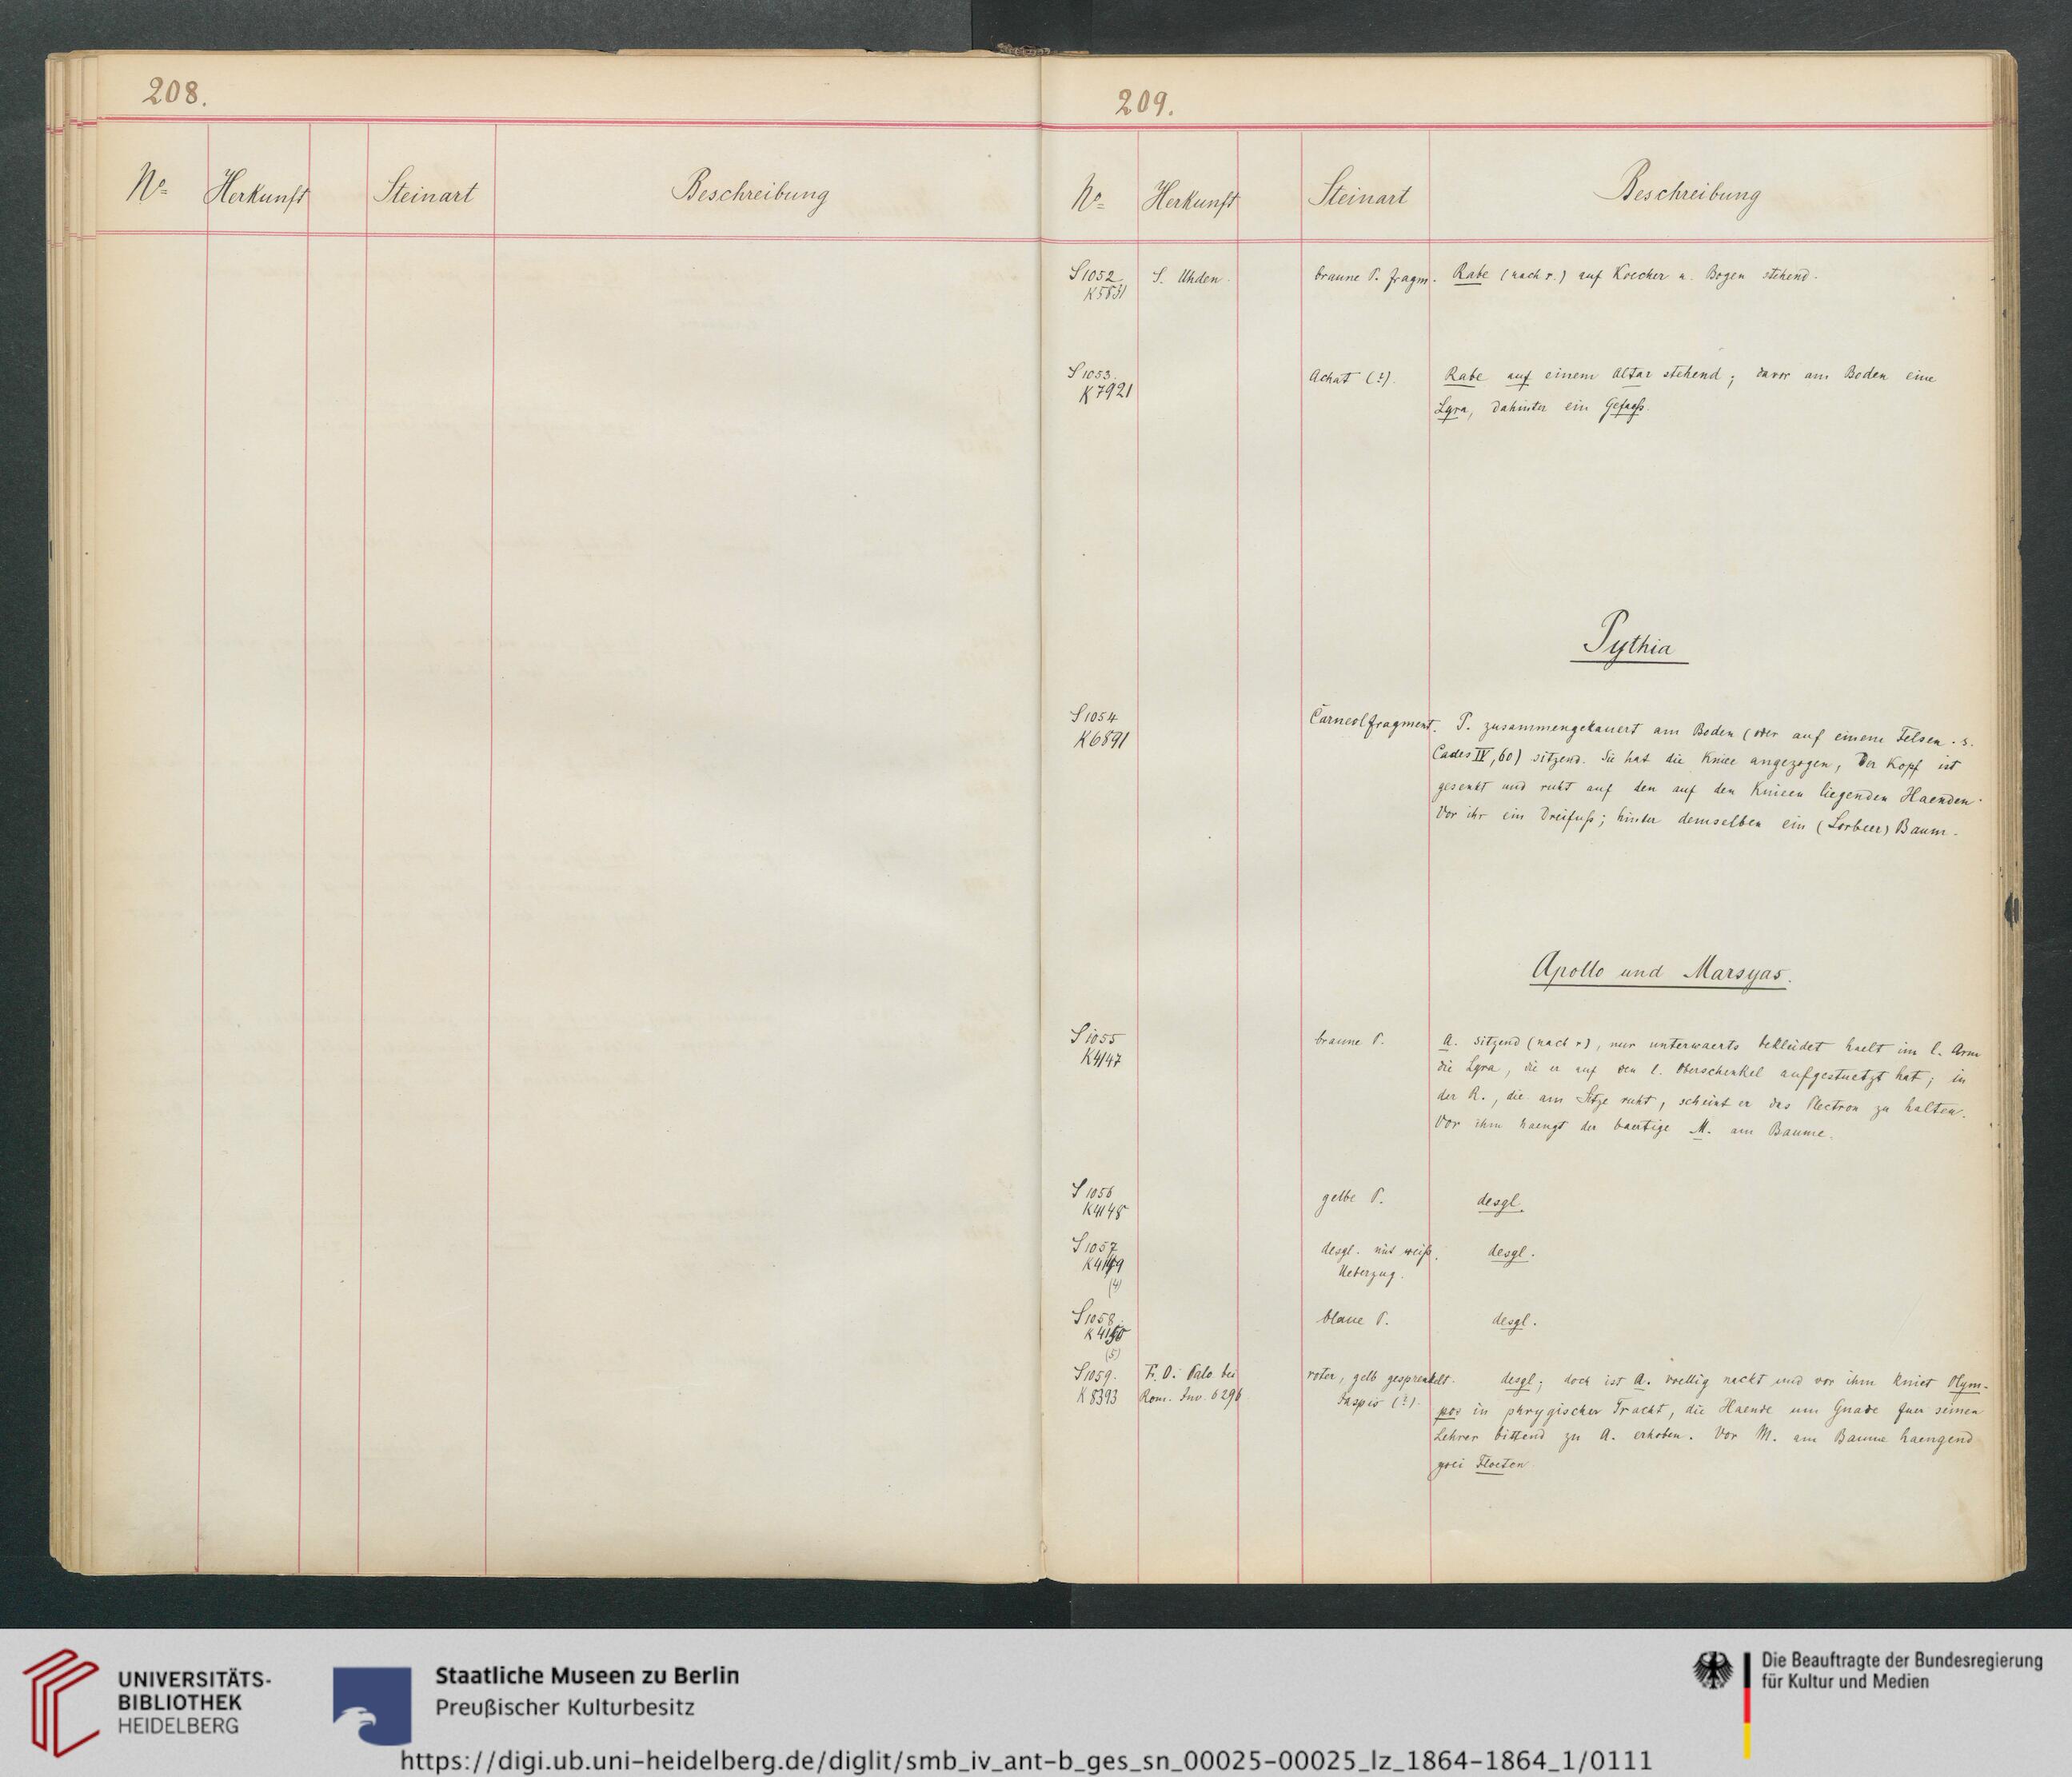 208.
No Herkunft Steinart Beschreibung
209.
No Herkunft Steinart Beschreibung
S 1052 S. Uhden. braune P. fragm. Rabe (nach r.) auf Koecher u. Bogen stehend.
K5831
S 1053. Achat (?). Rabe auf einem Altar stehend; davor am Boden eine
K7921 Lyra, dahinter ein Gefaess.
Pythia
S 1054 Carneolfragment. P. zusammengekauert am Boden (oder auf einem Felsen. s.
K6891 Cades IV, 60) sitzend. Sie hat die Kniee angezogen, der Kopf ist
gesenkt und ruht auf den auf den Knieen liegenden Haenden.
Vor ihr ein Dreifuß; hinter demselben ein (Lorbeer) Baum.
Apollo und Marsyas.
S 1055 braune P. A. sitzend (nach r), nur unterwaerts bekleidet haelt im l. Arm
K4147 die Lyra, die er auf den l. Oberschenkel aufgestuetzt hat; in
der R., die am Sitze ruht, scheint er das Plectron zu halten.
Vor ihm haengt der baertige M. am Baume.
S 1056 gelbe P. desgl.
K4148
S 1057 desgl. mit weiß. desgl.
K4149 Ueberzug.
(4)
S 1058. blaue P. desgl.
K4150
(5)
S 1059. F. O.: Palo bei roter, gelb gesprenkelt. desgl; doch ist A. voellig nackt und vor ihm kniet Olym-
K 8393 Rom. Inv. 6296 Jaspis (?). pos in phrygischer Tracht, die Haende um Gnade fuer seinen
Lehrer bittend zu A. erhoben. Vor M. am Baume haengend
zwei Floeten
UNIVERSITÄTS-
BIBLIOTHEK
HEIDELBERG
Staatliche Museen zu Berlin
Preußischer Kulturbesitz
Die Beauftragte der Bundesregierung
für Kultur und Medien
https://digi.ub.uni-heidelberg.de/diglit/smb_iv_ant-b_ges_sn_00025-00025_lz_1864-1864_1/0111